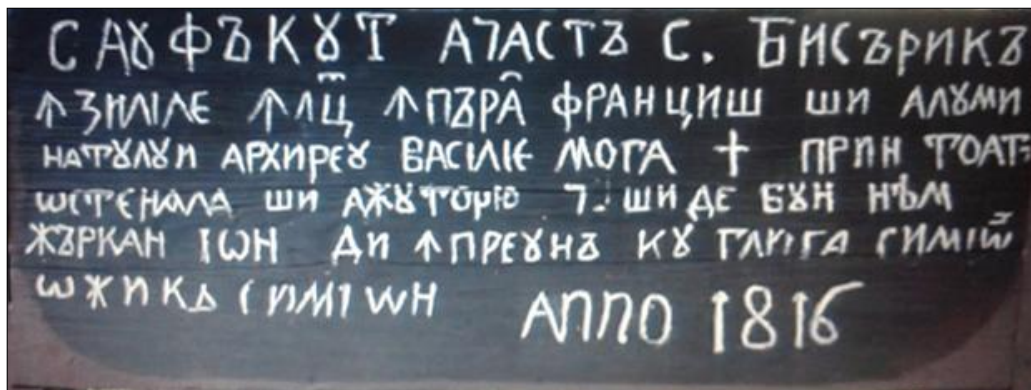 САȢФЪКȢТ АЧАСТЪ С. БИСЪРИКЪ
ꙞЗИЛІЛЕ ꙞЛЦ ꙞПЪРА ФРАНЦИШ ШИ АЛȢМИ
НАТȢЛȢИ АРХИРЕȢ ВАСІЛІЕ МОГА † ПРИН ТОАТ
ѠСТЕНАЛА ШИ АЖȢТОРЮ Ч. ШИ ДЕ БȢН НѢМ
ЖЪРКАН ІѠН ДИ ꙞПРЕȢНЪ КȢ ГЛИГА СИМІѠ
ѠЖИКЪ СИМІѠН АППО 1816